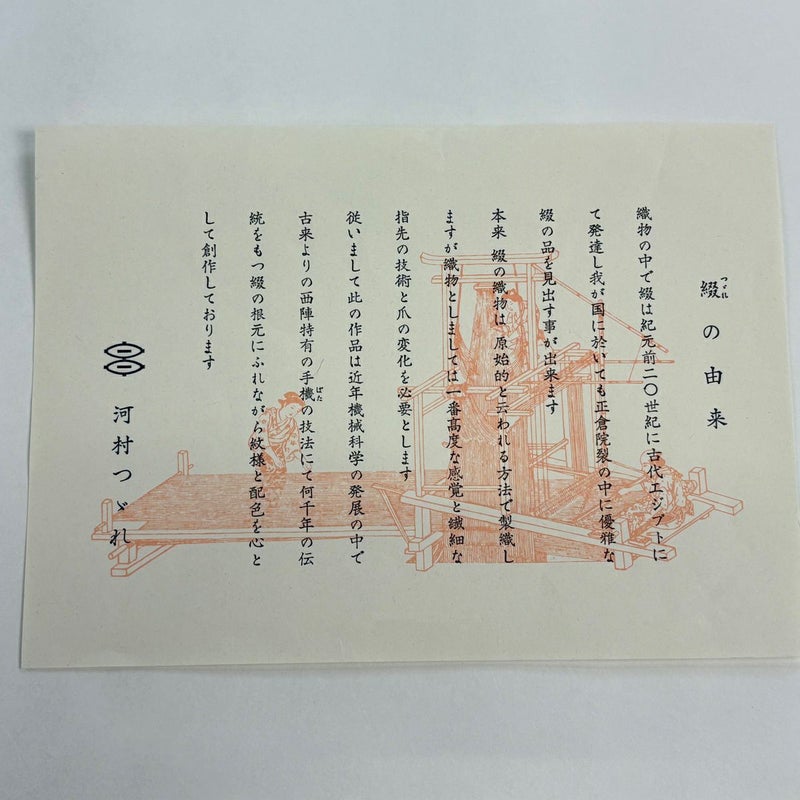 綴の由来
つゞれ
織物の中で綴は紀元前二〇世紀に古代エジプトに
て発達し我が国に於いても正倉院裂の中に優雅な
綴の品を見出す事が出来ます
本来 綴の織物は 原始的と云われる方法で製織し
ますが織物としましては一番高度な感覚と繊細な
指先の技術と爪の変化を必要とします
従いまして此の作品は近年機械科学の発展の中で
古来よりの西陣特有の手機の技法にて何千年の伝
ばた
統をもつ綴の根元にふれながら紋様と配色を心と
して創作しております
河村つゞれ